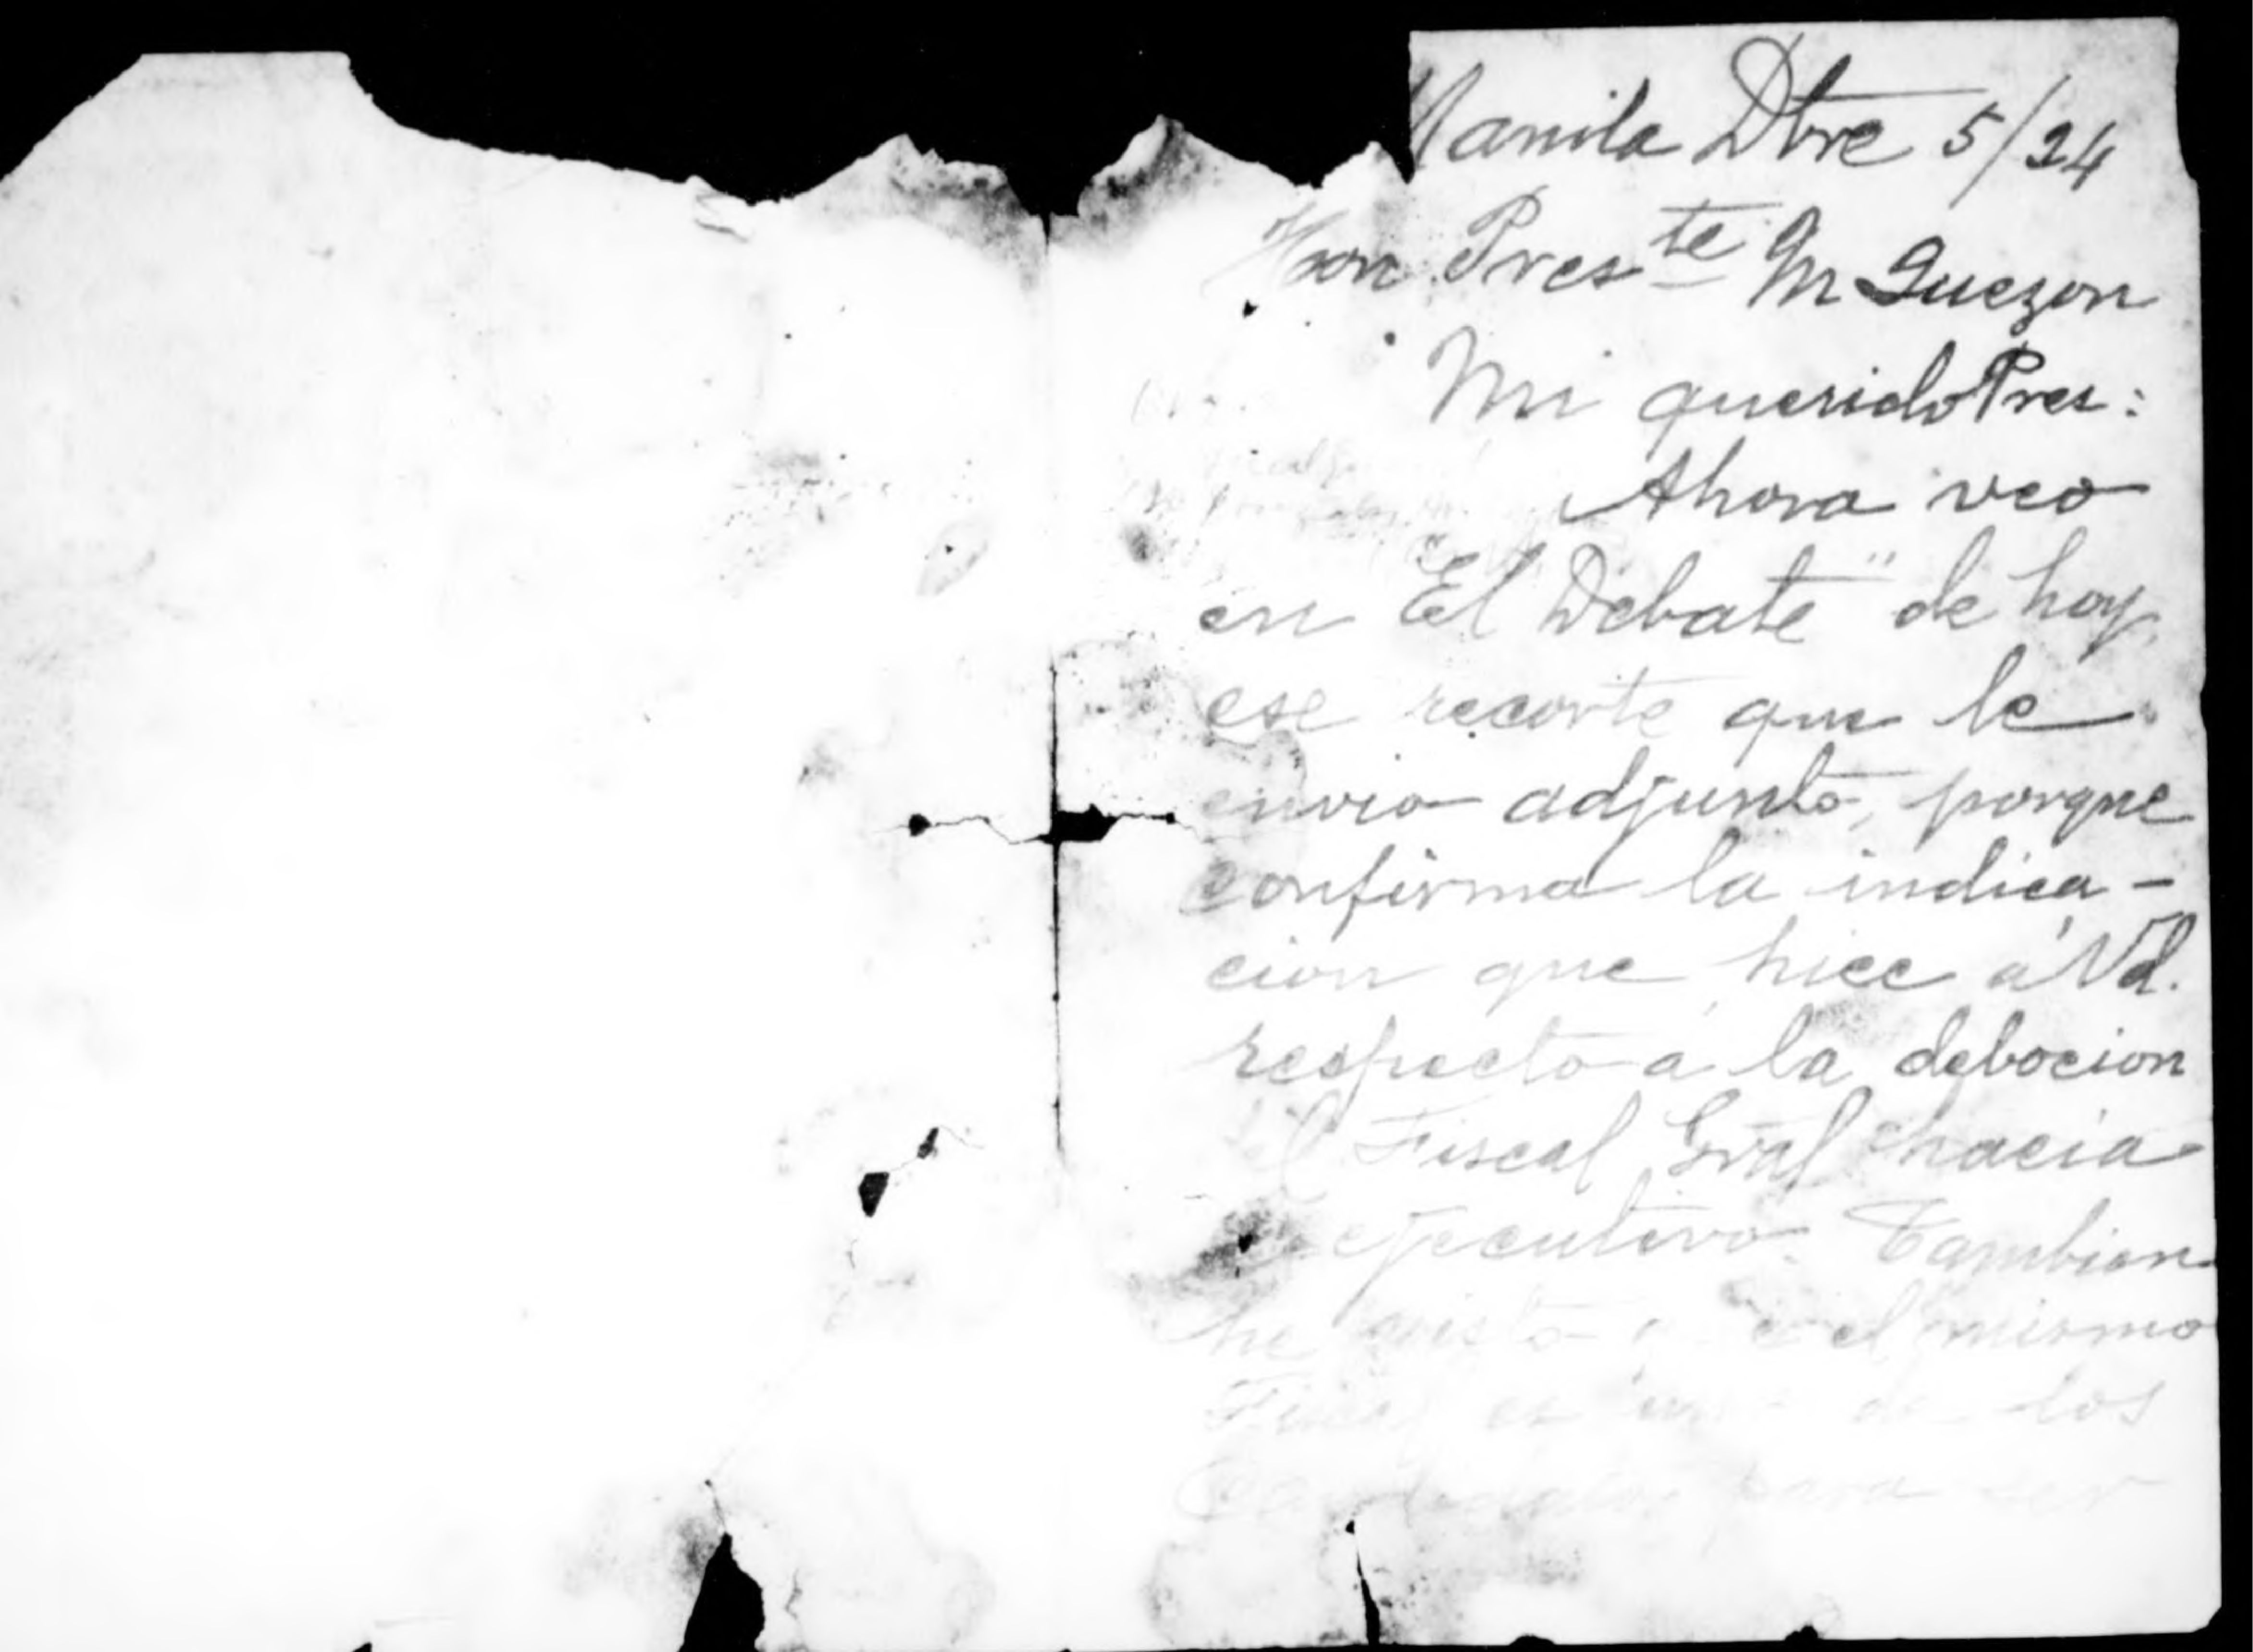 Manila Dbre 5/24
Hon Pres^te M Quezon
Mi querido Pres:
Ahora veo
en "El Debate" de hoy
ese recorte que le
envio adjunto, porque
confirma la indica-
cion que hice á Vd.
respecto a la debocion
Fiscal Gral hacia
ejecutivo. Tambien
he visto el mismo
es de los
para ser